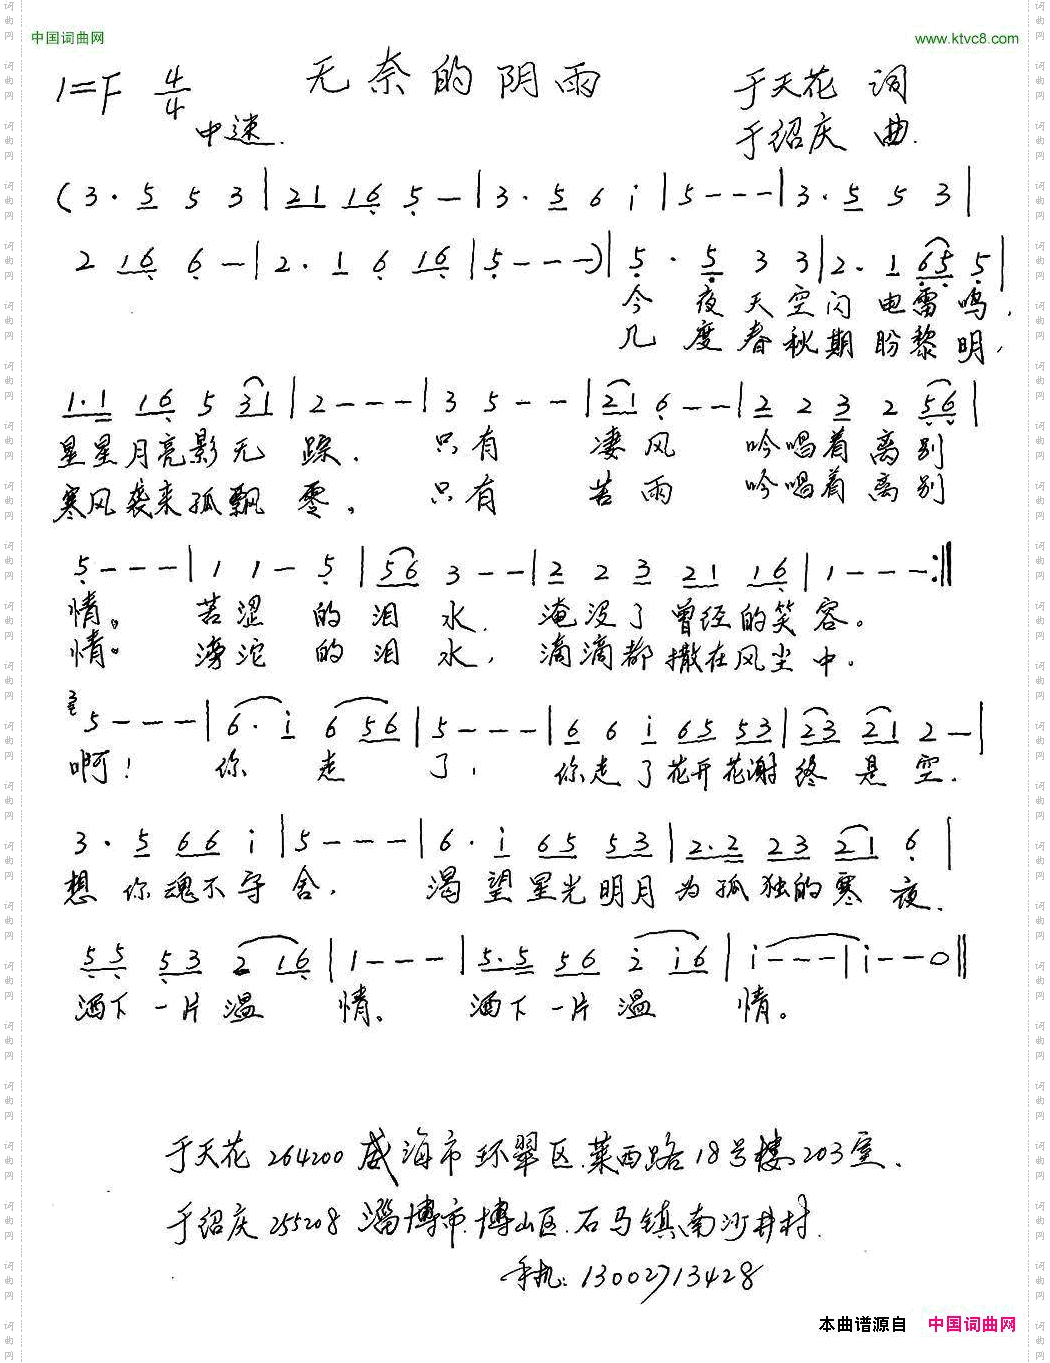 中国词曲网 www.ktvc8.com
无奈的阴雨
1=F 4/4
中速.
于天花 词
于绍庆 曲.
(3 · 5 5 3 | 2 1 1 6 5 - | 3 · 5 6 i | 5 - - - | 3 · 5 5 3 |
2 1 6 6 - | 2 · 1 6 1 6 | 5 - - -) | 5 · 5 3 3 | 2 · 1 6 5 5 |
今夜天空闪电雷鸣,
几度春秋期盼黎明,
1 · 1 1 6 5 3 1 | 2 - - - | 3 5 - - | 2 1 6 - - | 2 2 3 2 5 6 |
星星月亮影无踪. 只有 凄风 吟唱着离别
寒风袭来孤飘零, 只有 苦雨 吟唱着离别
5 - - - | 1 1 - 5 | 5 6 3 - - | 2 2 3 2 1 1 6 | 1 - - - :||
情。 苦涩 的泪水. 淹没了曾经的笑容。
情。 滂沱 的泪水, 滴滴都撒在风尘中.
3 5 - - - | 6 · i 6 5 6 | 5 - - - | 6 6 i 6 5 5 3 | 2 3 2 1 2 - |
啊! 你 走 了, 你走了花开花谢终是空.
3 · 5 6 6 i | 5 - - - | 6 · i 6 5 5 3 | 2 · 2 2 3 2 1 6 |
想你魂不守舍. 渴望星光明月为孤独的寒夜.
5 5 5 3 2 1 6 | 1 - - - | 5 · 5 5 6 i i 6 | i - - - | i - - 0 ||
洒下一片温 情. 洒下一片温 情。
于天花 264200 威海市环翠区.莱西路18号楼203室.
于绍庆 255208 淄博市.博山区.石马镇南沙井村.
手机: 13002713428
本曲谱源自 中国词曲网